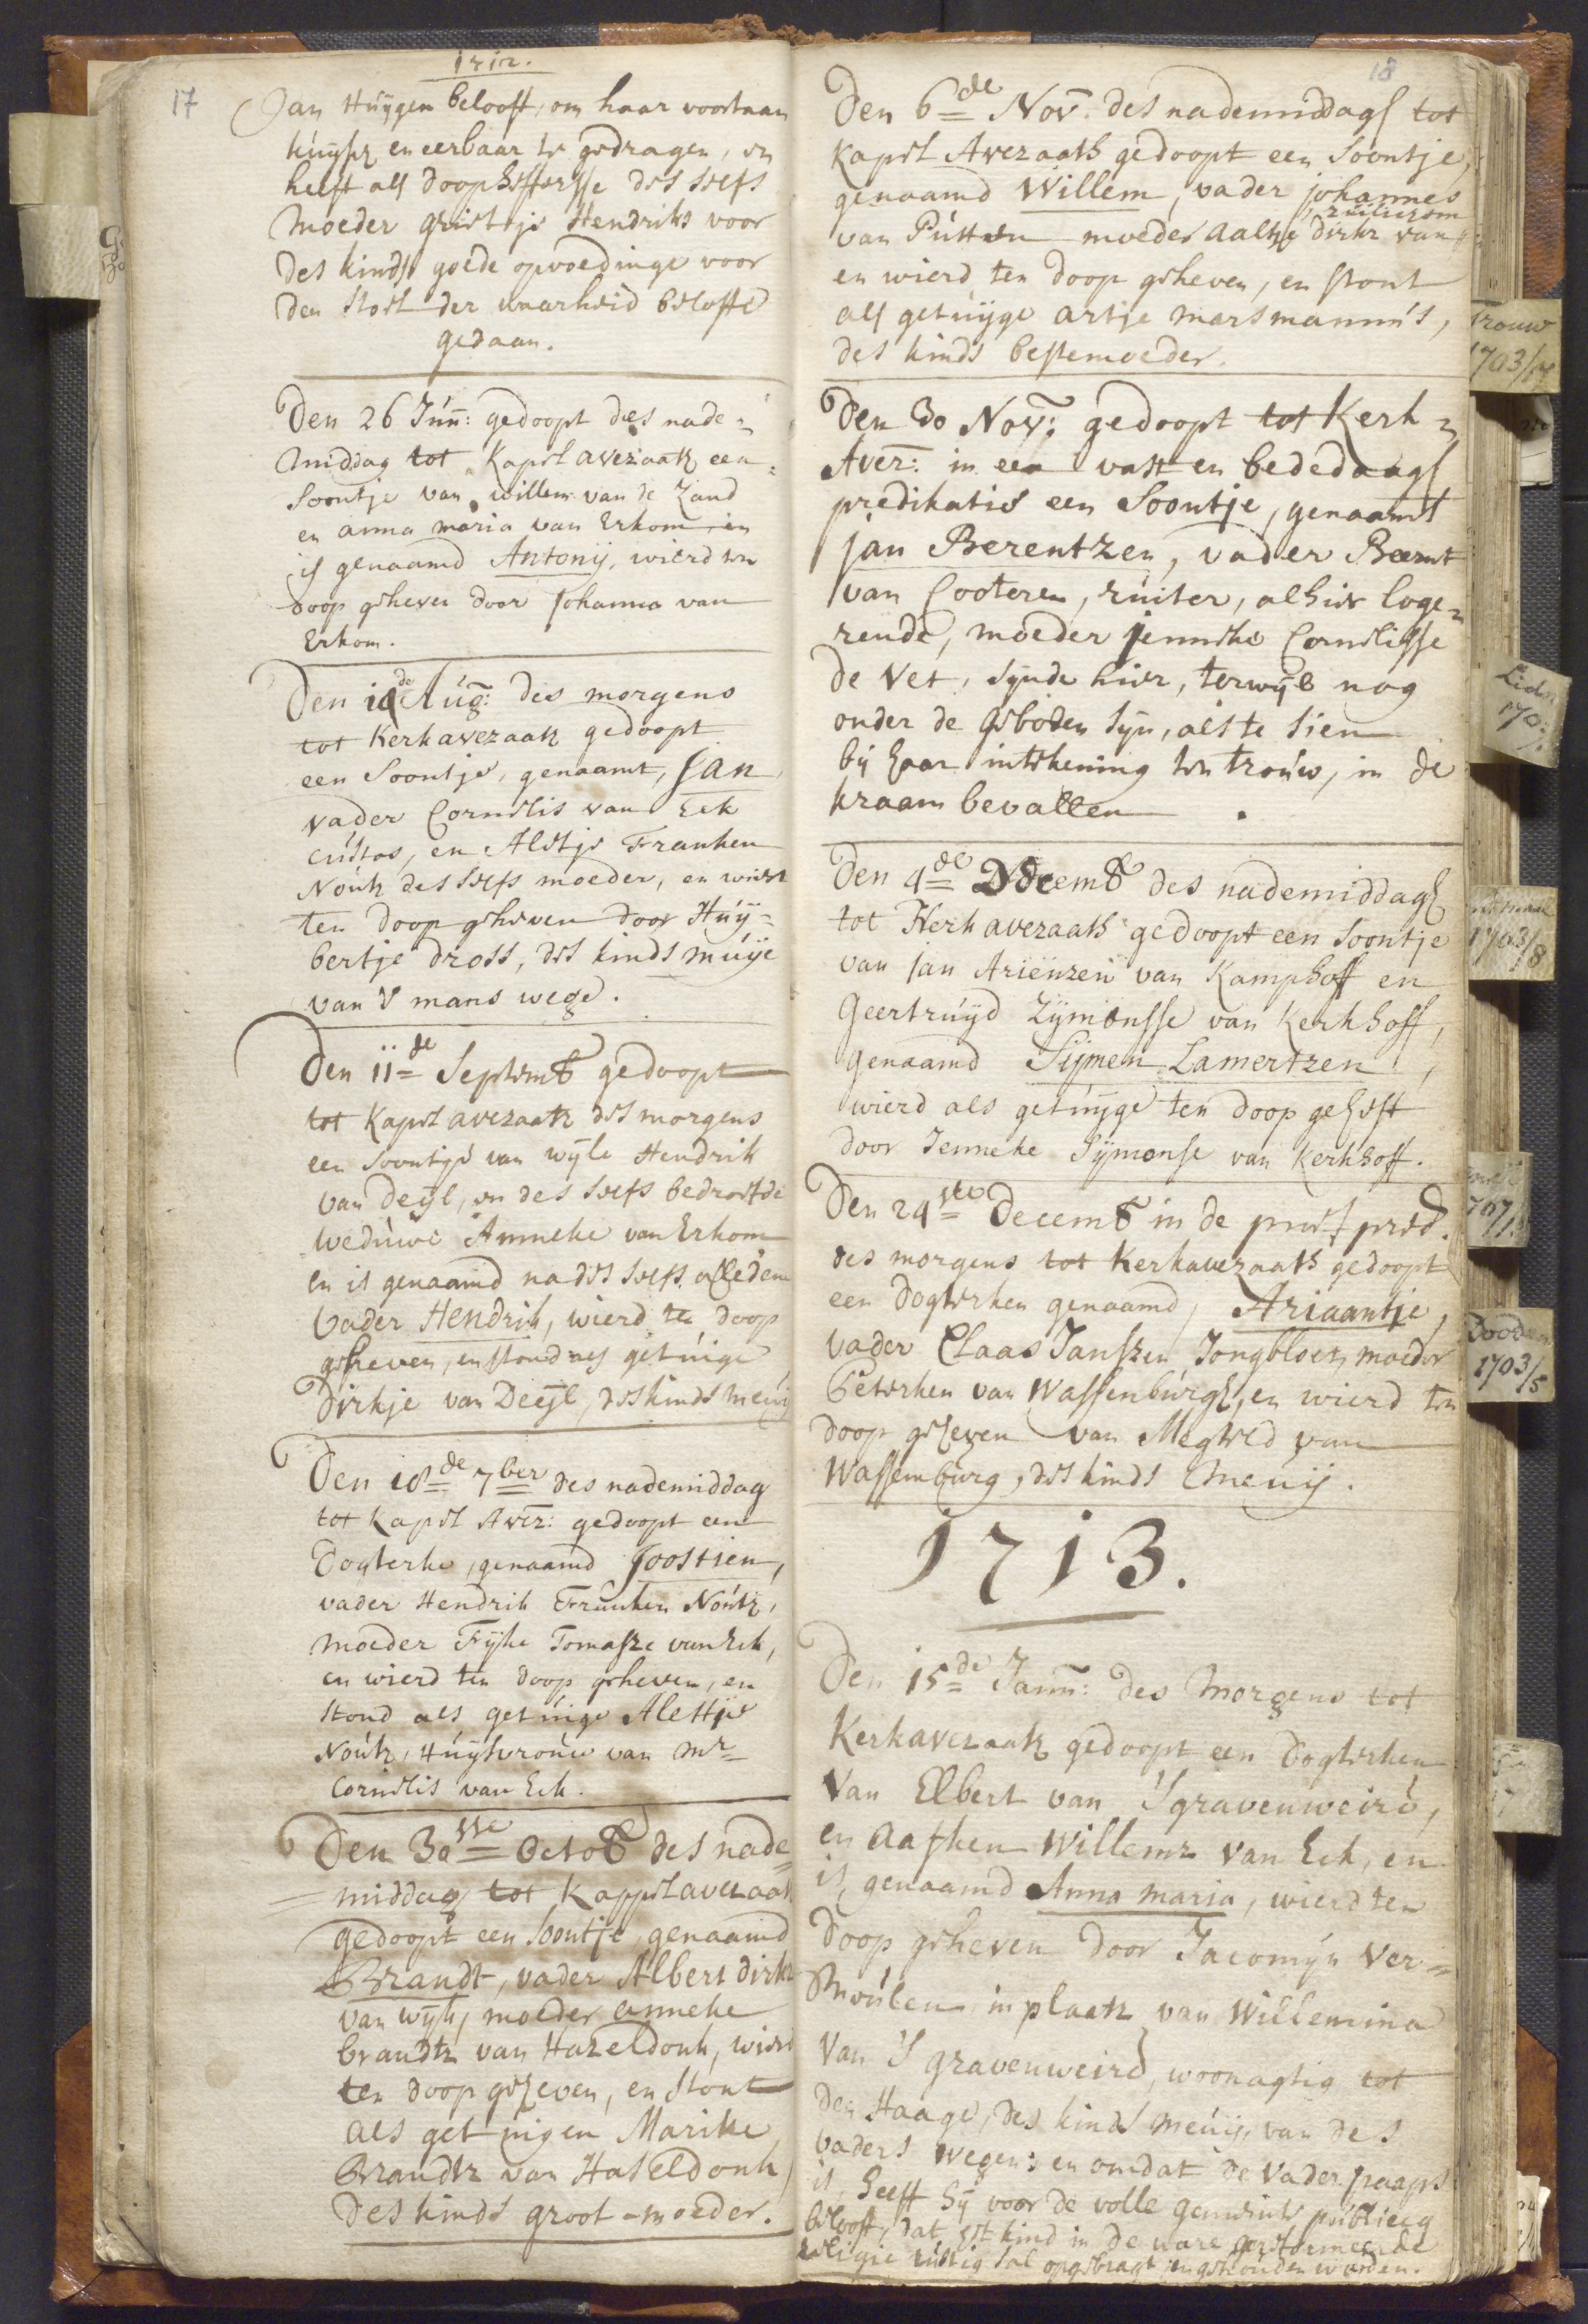 1712.
17
Jan Huijgen belooft, om haar voortaan
kuijsch en eerbaar te gedragen, en
heeft als doophefferse des selfs
moeder grietje Hendriks voor
des kinds goede opvoedinge voor
den stoel der waarheid belofte
gedaan.
Den 26 Jun: gedoopt des nade=
middag tot Kapel avezaatz een
Soontje van willem van de Zand
en anna maria van Erkom, en
is genaamd Antonij, wierd ten
doop geheven door Johanna van
Erkom.
Den Aug: des morgens
tot Kerkavezaatz gedoopt
een Soontje, genaamt, Jan
vader Cornelis van Eck
custos, en Aletje Franken
Noutz des selfs moeder, en wiert
ten doop geheven door Huij=
bertje dross, des kinds muije
van 's mans wege.
Den 11de Septemb gedoopt
tot Kapel avezaatz des morgens
een soontje van wijle Hendrik
van Deijl, en des selfs bedroefde
weduwe Anneke van Erkom
en is genaamd na des selfs overleden
Vader Hendrik, wierd ten doop
geheven, en stond als getuige
Dirkje van Deijl, des kinds meuij
Den 18de 7ber des nademiddag
tot Kapel Avez: gedoopt een
Dogterke, genaamd Joostien,
vader Hendrik Franken Noutz,
moeder Fijke Tomasze van Eck,
en wierd ten doop geheven, en
stond als getuige Alettje
Noutz, Huijsvrouw van Mr
Cornelis van Eck.
Den 30ste Octob des nade=
middag tot Kappel avezaat
gedoopt een Soontje genaamd
Brandt, vader Albert dirkz
van wijk, moeder anneke
brandtz van Hazeldonk, wiert
ten doop geheven, en stont
als getuigen Marike
Brandtz van Haseldonk,
des kinds groot-moeder.
18
Den 6de Nov: des nademiddags tot
Kapel Avezaath gedoopt een Soontje,
genaamd Willem, vader johannes
van Putten moeder aaltje dirkz van
en wierd ten doop geheven, en stont
als getuijge artje marsmanns,
des kinds bestemoeder.
Den 30 Nov: gedoopt tot Kerk=
Avez: in een vast en bededaags
predikatie een Soontje, genaamt
jan Berentzen, vader Beernt
van Cooteren, ruiter, alhier loge=
rende, moeder jenneke Cornelisse
de Vet, sijnde hier, terwijl nog
onder de geboden sijn, als te sien
bij haar intekening ten trouw, in de
kraam bevallen.
Den 4de Decemb des nademiddags
tot Kerkavezaath gedoopt een Soontje
van jan Arienzen van Kamphoff en
Geertruijd Zijmonsse van Kerkhoff,
genaamd Sijmen Lamertzen,
wierd als getuijge ten doop geheft
door Jenneke Sijmonse van Kerkhoff.
Den 24ste Decemb in de pred.
des morgens tot Kerkavezaath gedoopt
een dogterken genaamd, Ariaantje,
vader Claas Janszen Jongbloet, moeder
Peterken van Wassenburgh, en wierd ten
doop geheven van Megteld van
Wassemburg, des kinds Meuij.
1713.
Den 15de Jann: des Morgens tot
Kerkavezaatz gedoopt een Dogterken
Van Elbert van 's gravenweird,
en Aafken Willemz van Eck, en
is, genaamd Anna maria, wierd ten
doop geheven door Jacomijn Ver=
Moulen in plaatz van Willemina
Van 's gravenweird, woonagtig tot
den Haage, des kinds meuij, van des
Vaders wegen; en omdat de Vader paaps
is, heeft hij voor de volle gemeinte publiecq
belooft, dat het kind in de ware gereformeerde
religie rustig sal opgebragt en gehouden worden.
Trouw
1703/
1703/8
1767/
Dooden
1703/5